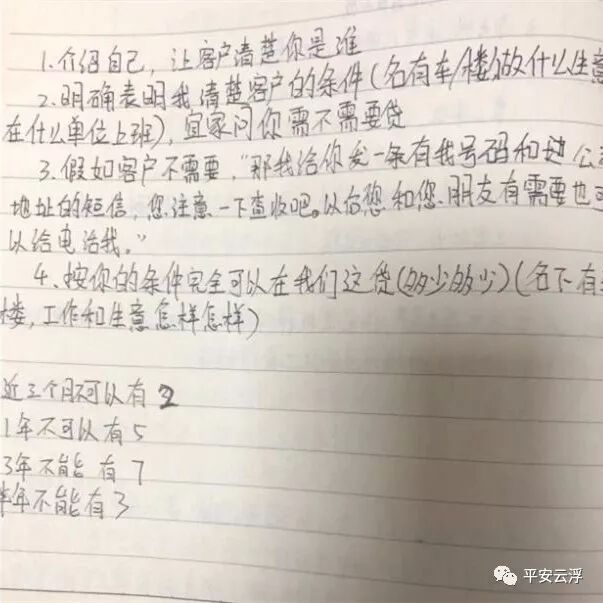 1.介绍自己，让客户清楚你是谁
2.明确表明我清楚客户的条件（名有车/楼做什么生意
在什么单位上班），宜家问你需不需要贷
3.假如客户不需要，“那我给你发一条有我号码和边公
地址的短信，您注意一下查收吧。以后您和您朋友有需要也可
以给电话我。”
4、按你的条件完全可以在我们这贷（多少多少）（名下有
楼，工作和生意怎样怎样）
近三个月不可以有2
1年不可以有5
3年不能有7
半年不能有3
平安云浮